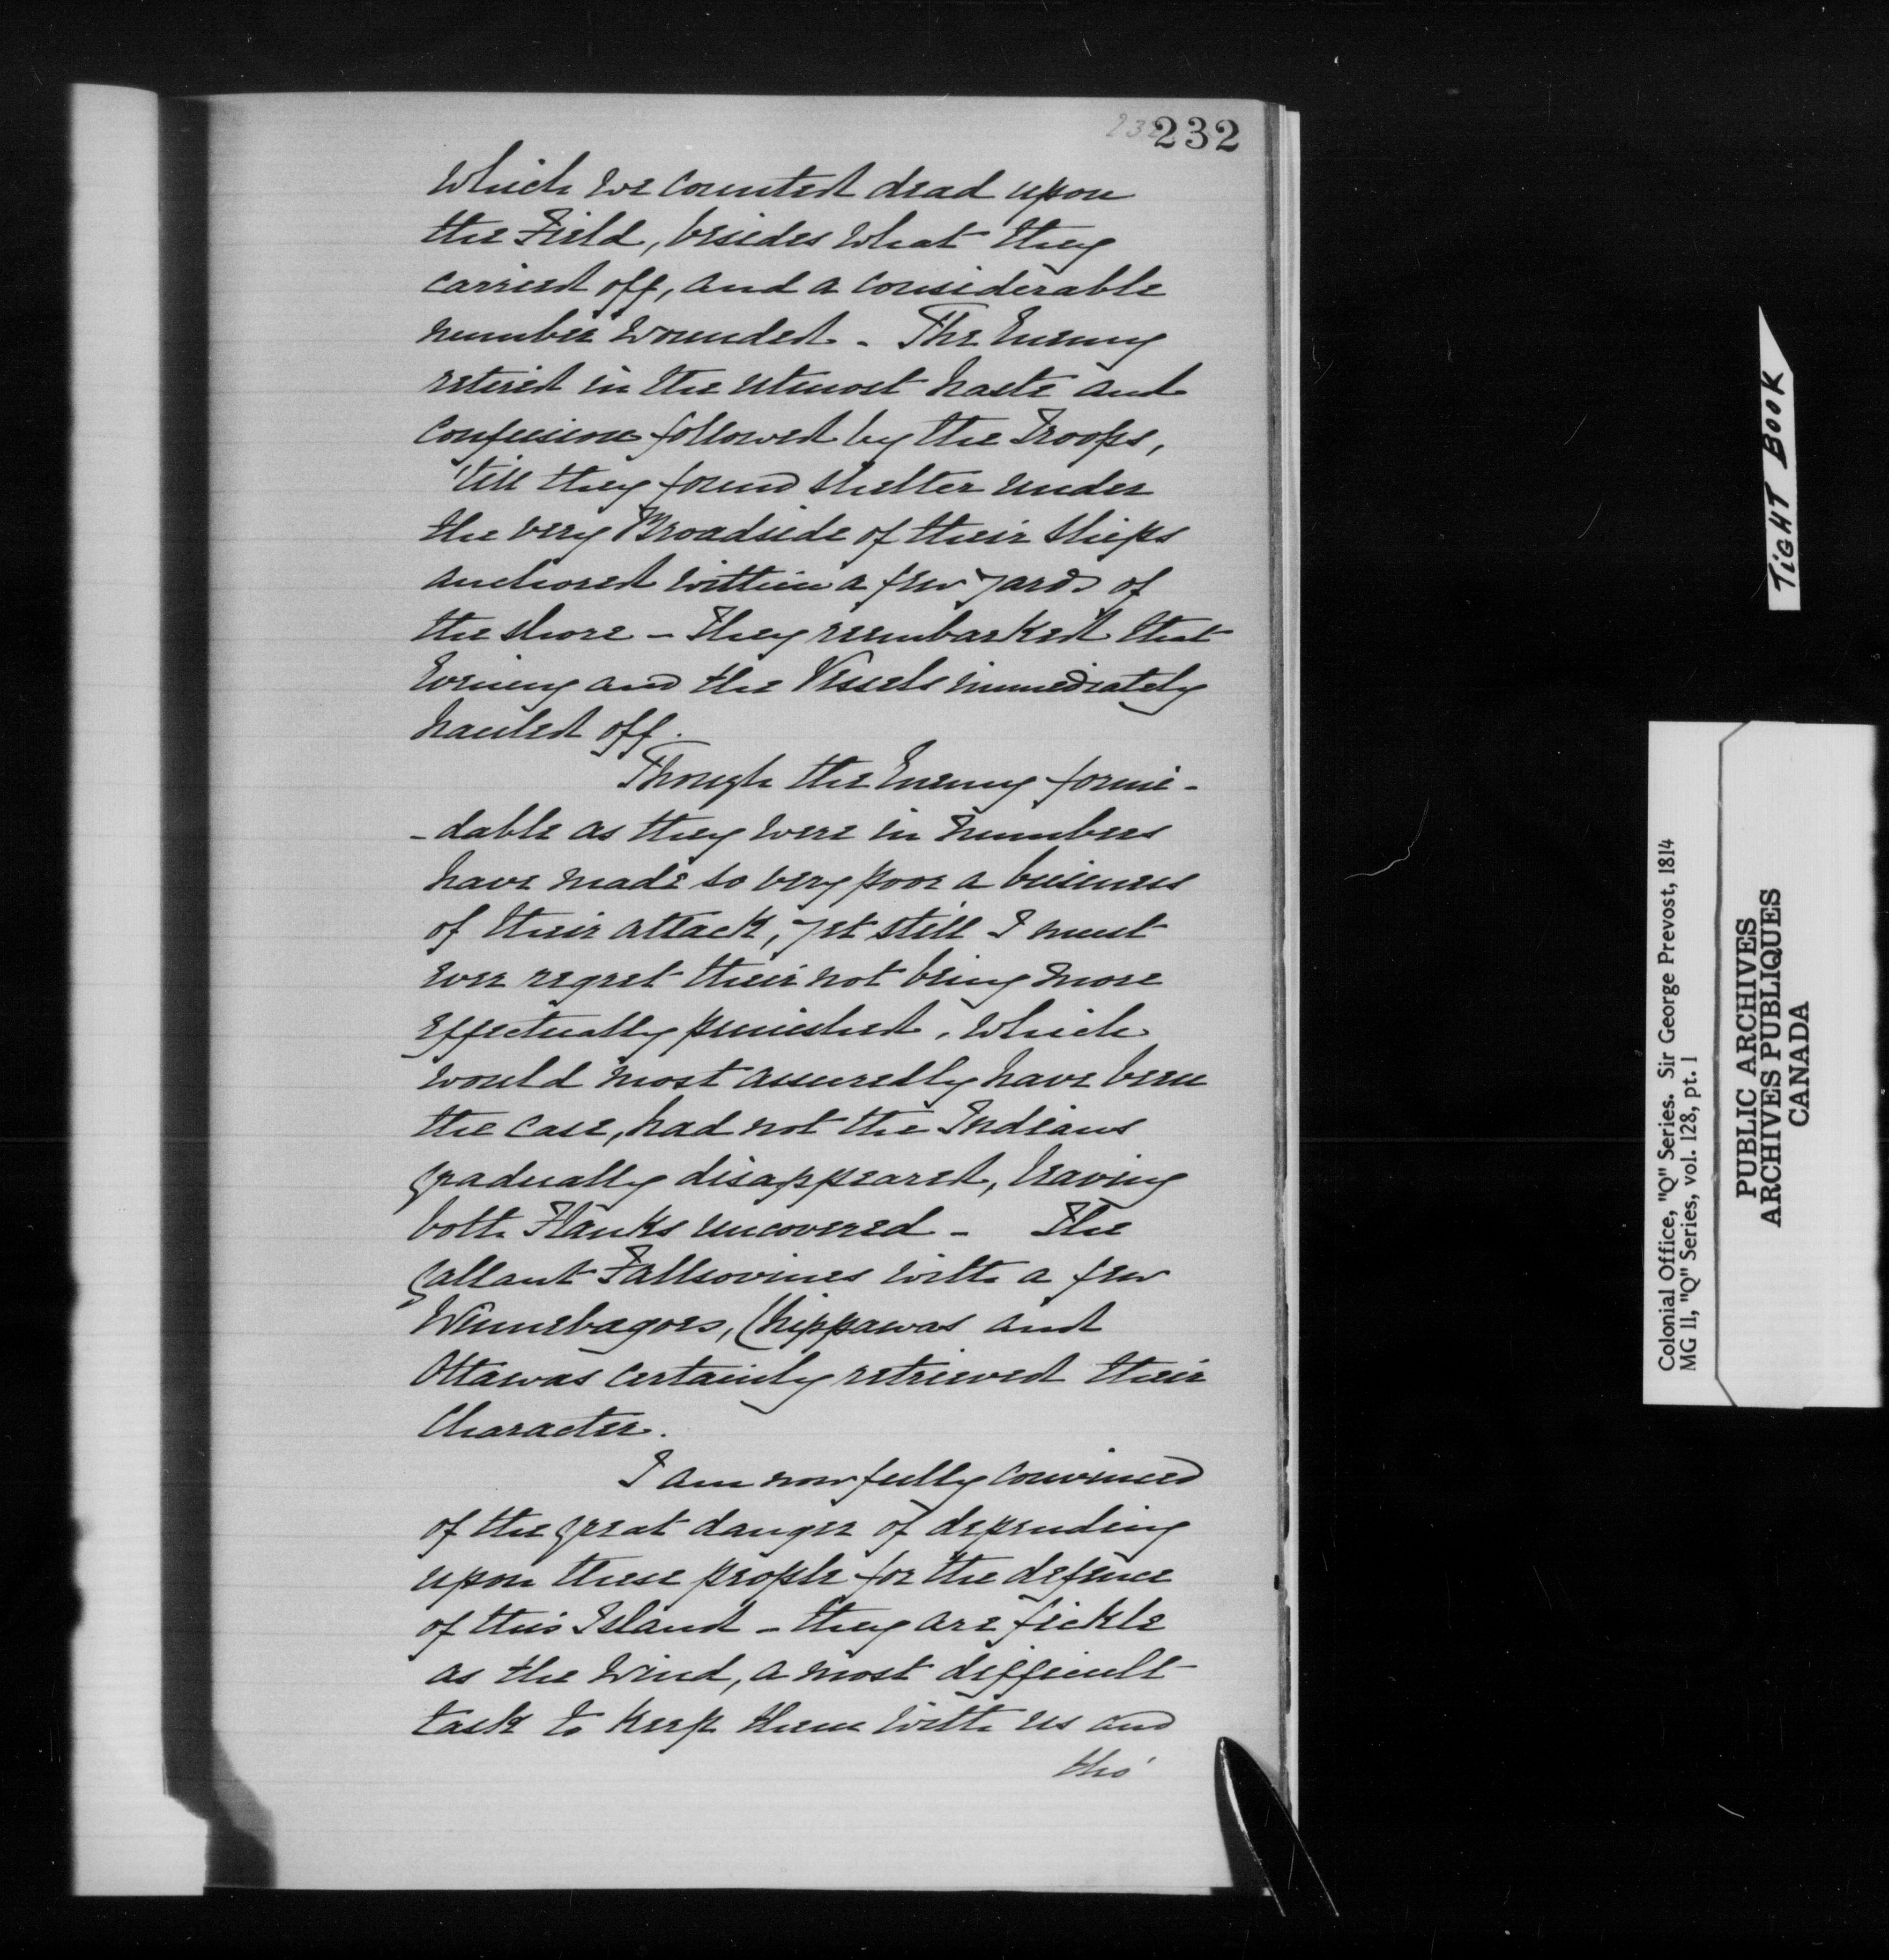 232
232
which we counted dead upon
the Field, besides what they
carried off, and a considerable
number wounded. - The Enemy
retired in the utmost haste and
confusion followed by the Troops,
'till they found shelter under
the very Broadside of their ships
anchored within a few yards of
the shore - They reembarked that
Evening and the Vessels immediately
hauled off.
Though the Enemy formi-
-dable as they were in numbers
have made so very poor a business
of their attack, yet still I must
ever regret their not being more
effectually punished, which
would most assuredly have been
the case, had not the Indians
gradually disappeared, leaving
both Flanks uncovered - The
Gallant Fallsovines with a few
Winnebagoes, Chippawas and
Ottawas certainly retrieved their
Character.
I am now fully convinced
of the great danger of depending
upon these people for the defence
of this Island - they are fickle
as the Wind, a most difficult
task to keep them with us and
tho'
TIGHT BOOK
Colonial Office, "Q" Series. Sir George Prevost, 1814
MG 11, "Q" Series, vol. 128, pt. 1
PUBLIC ARCHIVES
ARCHIVES PUBLIQUES
CANADA